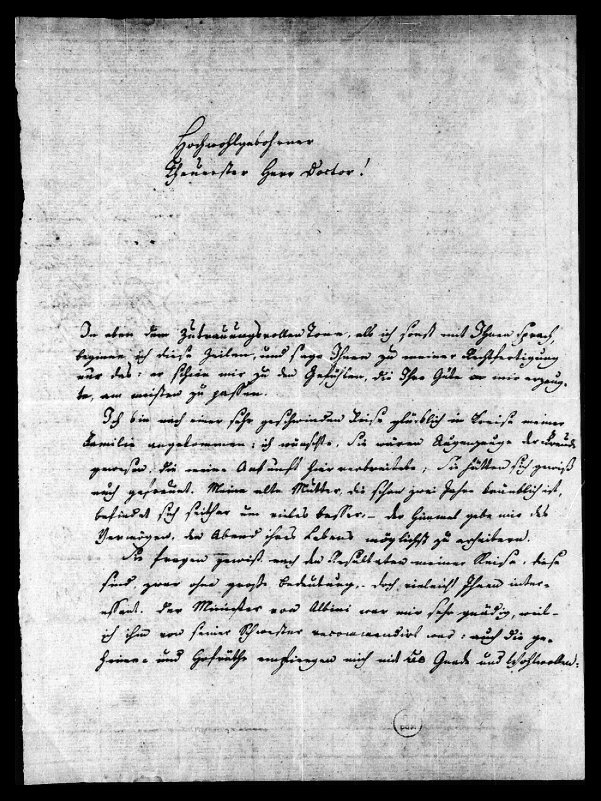 Hochwohlgebohrner
Theurester Herr Doctor!
In eben dem Zutrauungsvollen Tone, als ich sonst mit Ihnen sprach,
beginne ich diese Zeilen, und sage Ihnen zu meiner Rechtfertigung
nur das: er schien mir zu den Gefühlen, die Ihre Güte in mir erzeug-
te, am meisten zu passen.
Ich bin nach einer sehr geschwinden Reise glücklich im Kreise meiner
Familie angekommen; ich wünschte, Sie wären Augenzeuge der Freude
gewesen, die meine Ankunft hier verbreitete; Sie hätten sich gewiß
mit gefreuet. Meine alte Mutter, die schon zwei Jahre kränklich ist,
befindet sich seither um vieles besser. – der Himmel gebe mir das
Vermögen, den Abend ihres Lebens möglichst zu erheitern.
Sie fragen gewiß nach den Resultaten meiner Reise, diese
sind zwar ohne große Bedeutung, doch vieleicht Ihnen inter-
essant. Der Minister von Albini war mir sehr gnädig, weil
ich ihm von seiner Schwester recommendirt war; auch die ge-
heime- und Hofräthe empfiengen mich mit Gnade und Wohlwollen: